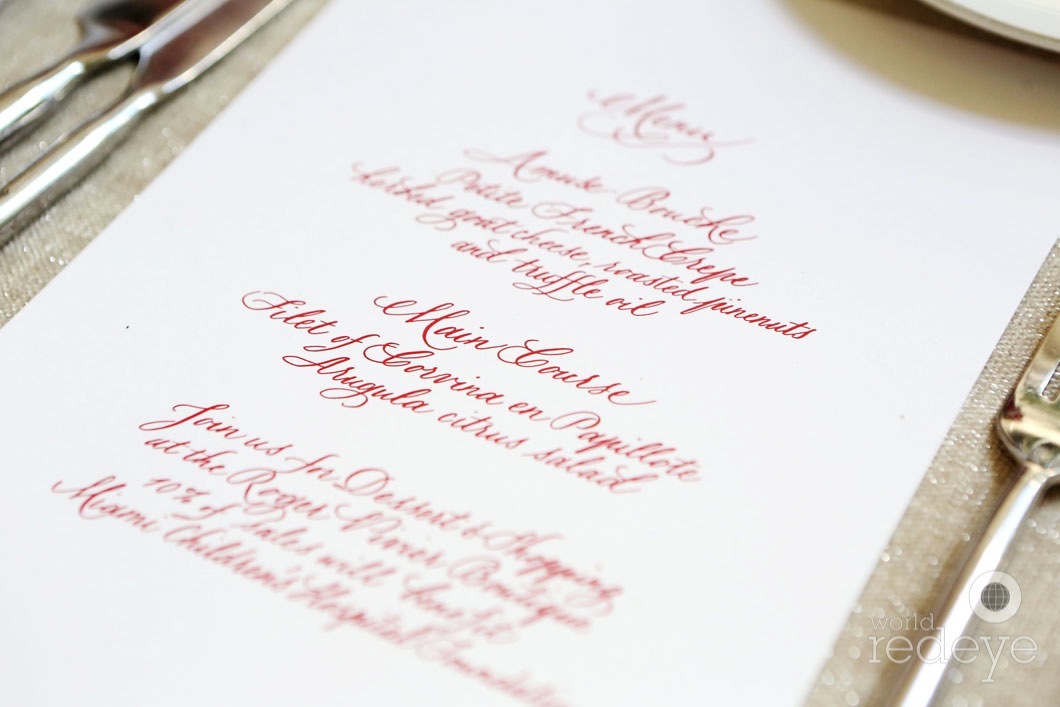 Menu
Amuse-Bouche
Petite French Crepe
herbed goat cheese, roasted pinenuts
and truffle oil
Main Course
Filet of Corvina en Papillote
Arugula citrus salad
Join us for Dessert & Shopping
at the Roger Vivier Boutique
10% of sales will benefit
Miami Children's Hospital Foundation
world
redeye